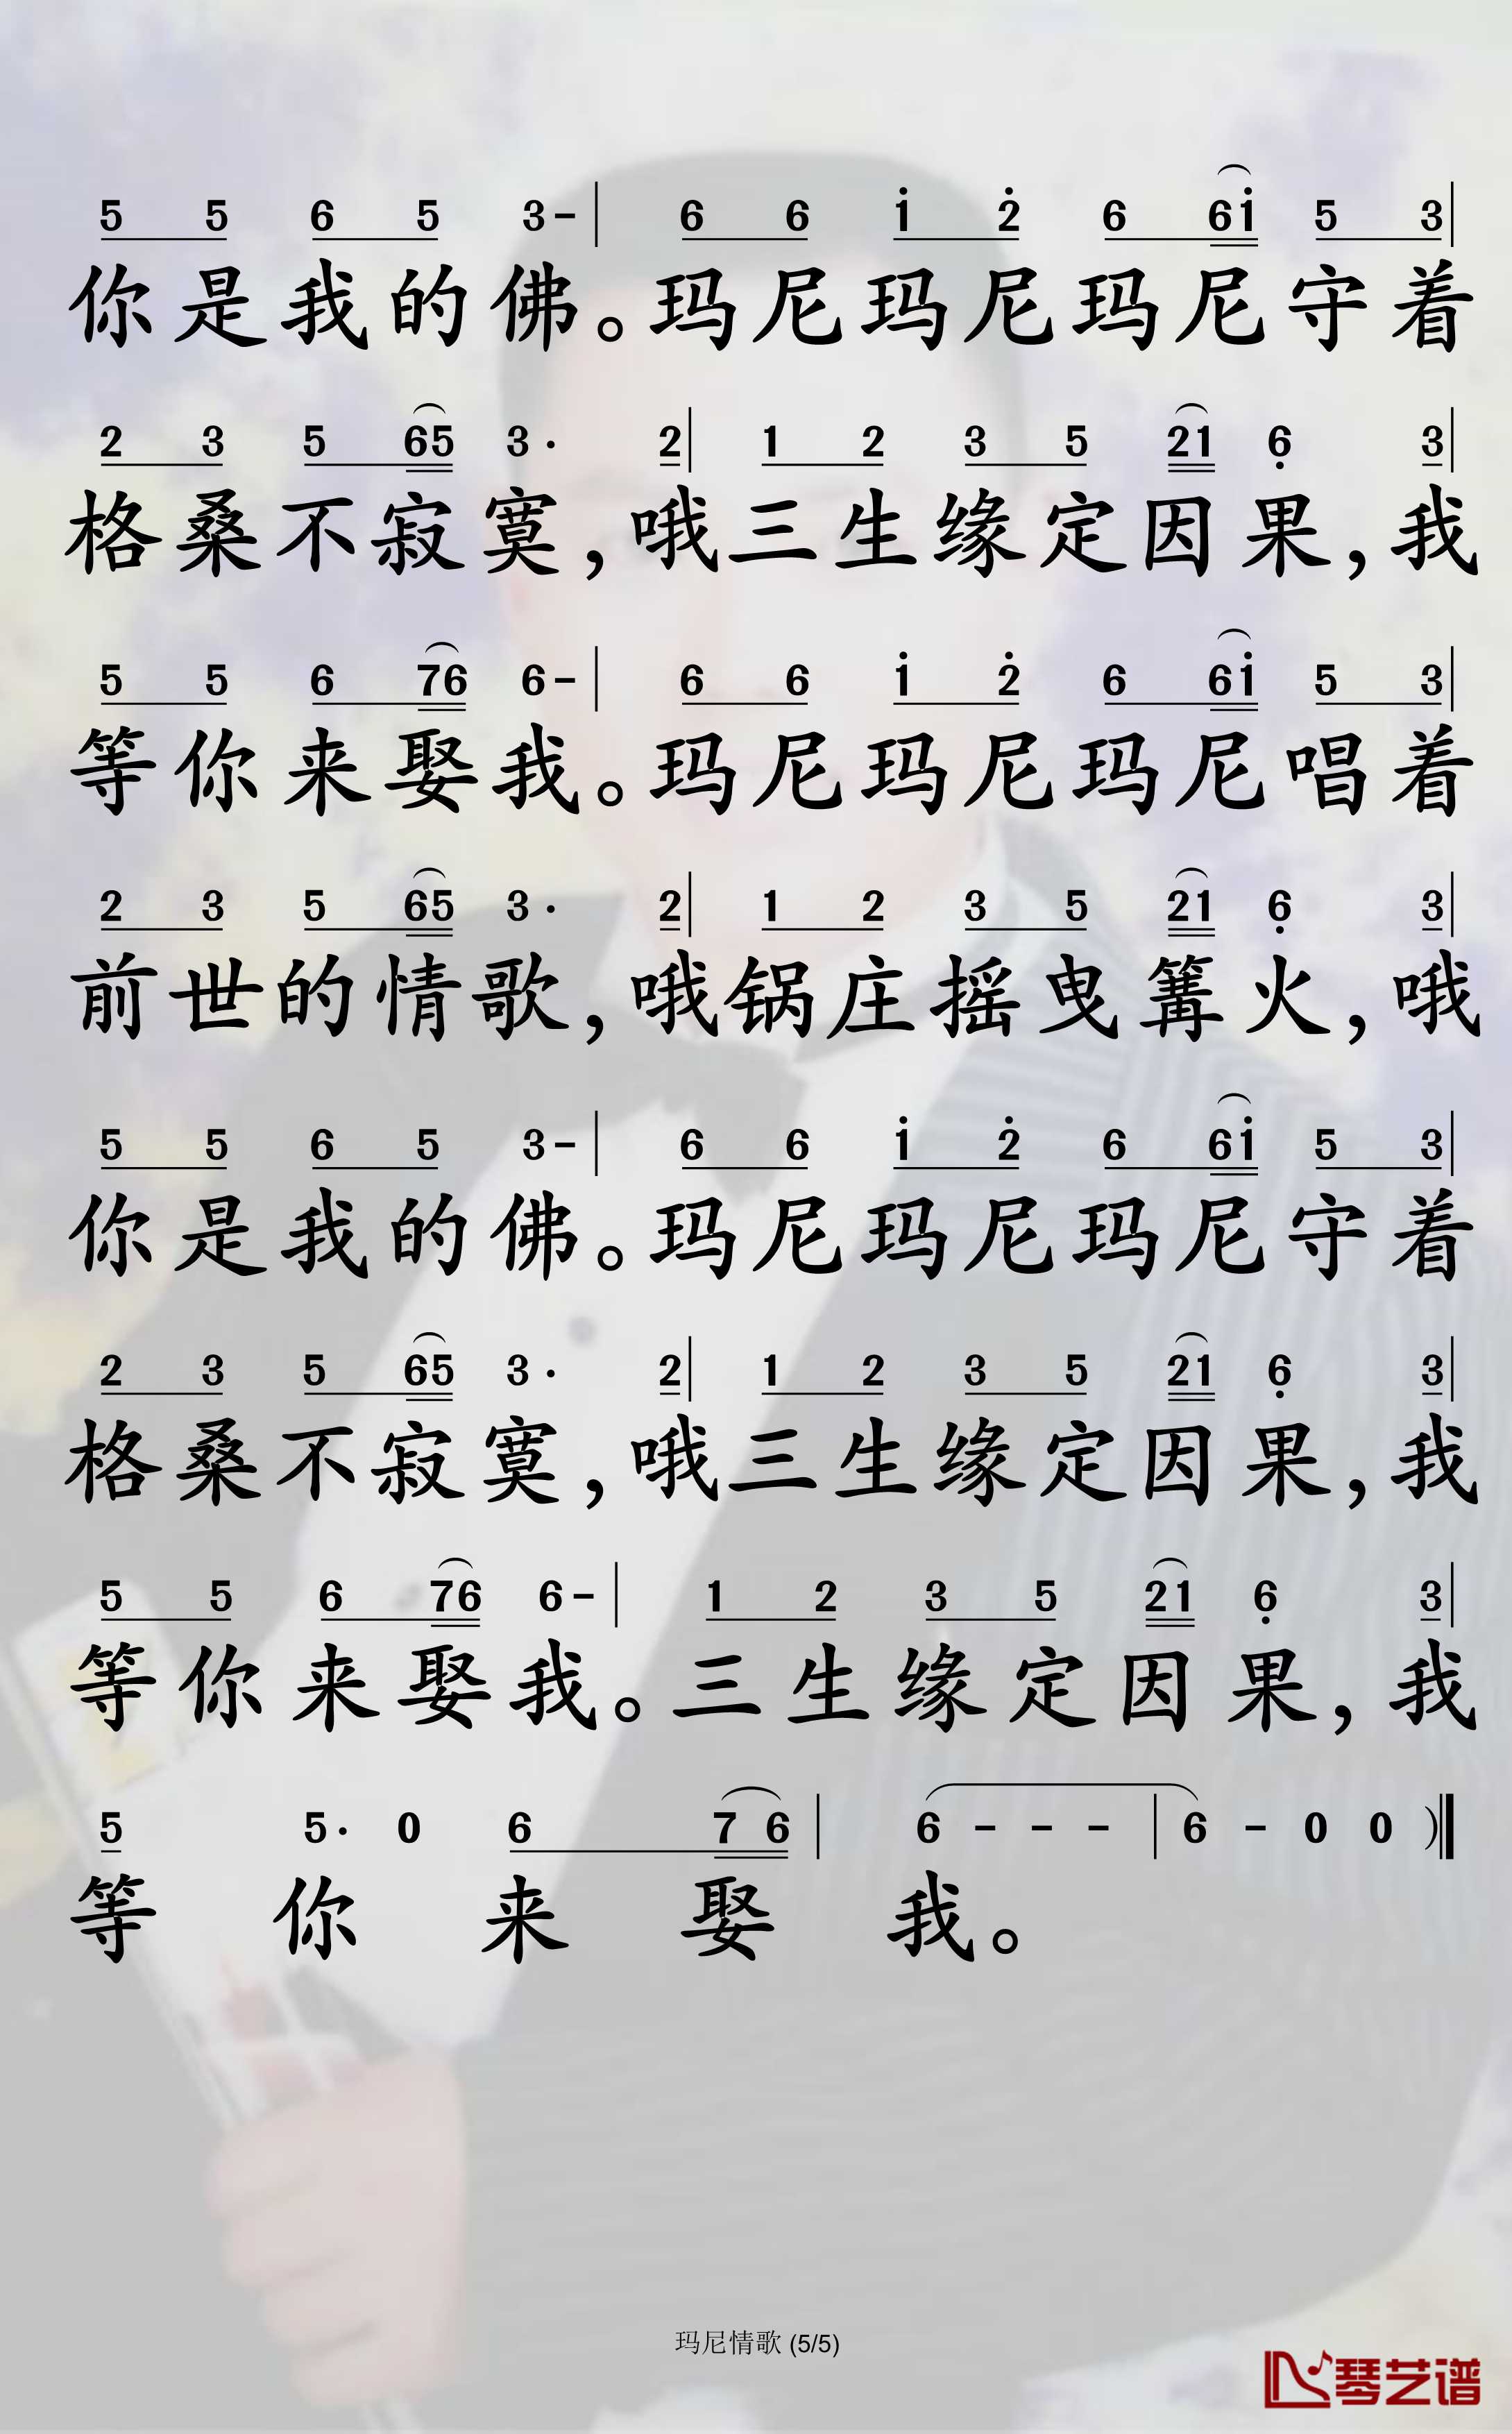 5 5 6 5 3- | 6 6 1̇ 2̇ 6 61̇ 5 3 |
你是我的佛。玛尼玛尼玛尼守着
2 3 5 65 3· 2 | 1 2 3 5 21 6̣ 3 |
格桑不寂寞，哦三生缘定因果，我
5 5 6 76 6- | 6 6 1̇ 2̇ 6 61̇ 5 3 |
等你来娶我。玛尼玛尼玛尼唱着
2 3 5 65 3· 2 | 1 2 3 5 21 6̣ 3 |
前世的情歌，哦锅庄摇曳篝火，哦
5 5 6 5 3- | 6 6 1̇ 2̇ 6 61̇ 5 3 |
你是我的佛。玛尼玛尼玛尼守着
2 3 5 65 3· 2 | 1 2 3 5 21 6̣ 3 |
格桑不寂寞，哦三生缘定因果，我
5 5 6 76 6- | 1 2 3 5 21 6̣ 3 |
等你来娶我。三生缘定因果，我
5 5· 0 6 7 6 | 6 - - - | 6 - 0 0 )‖
等你来娶我。
玛尼情歌 (5/5)
琴艺谱